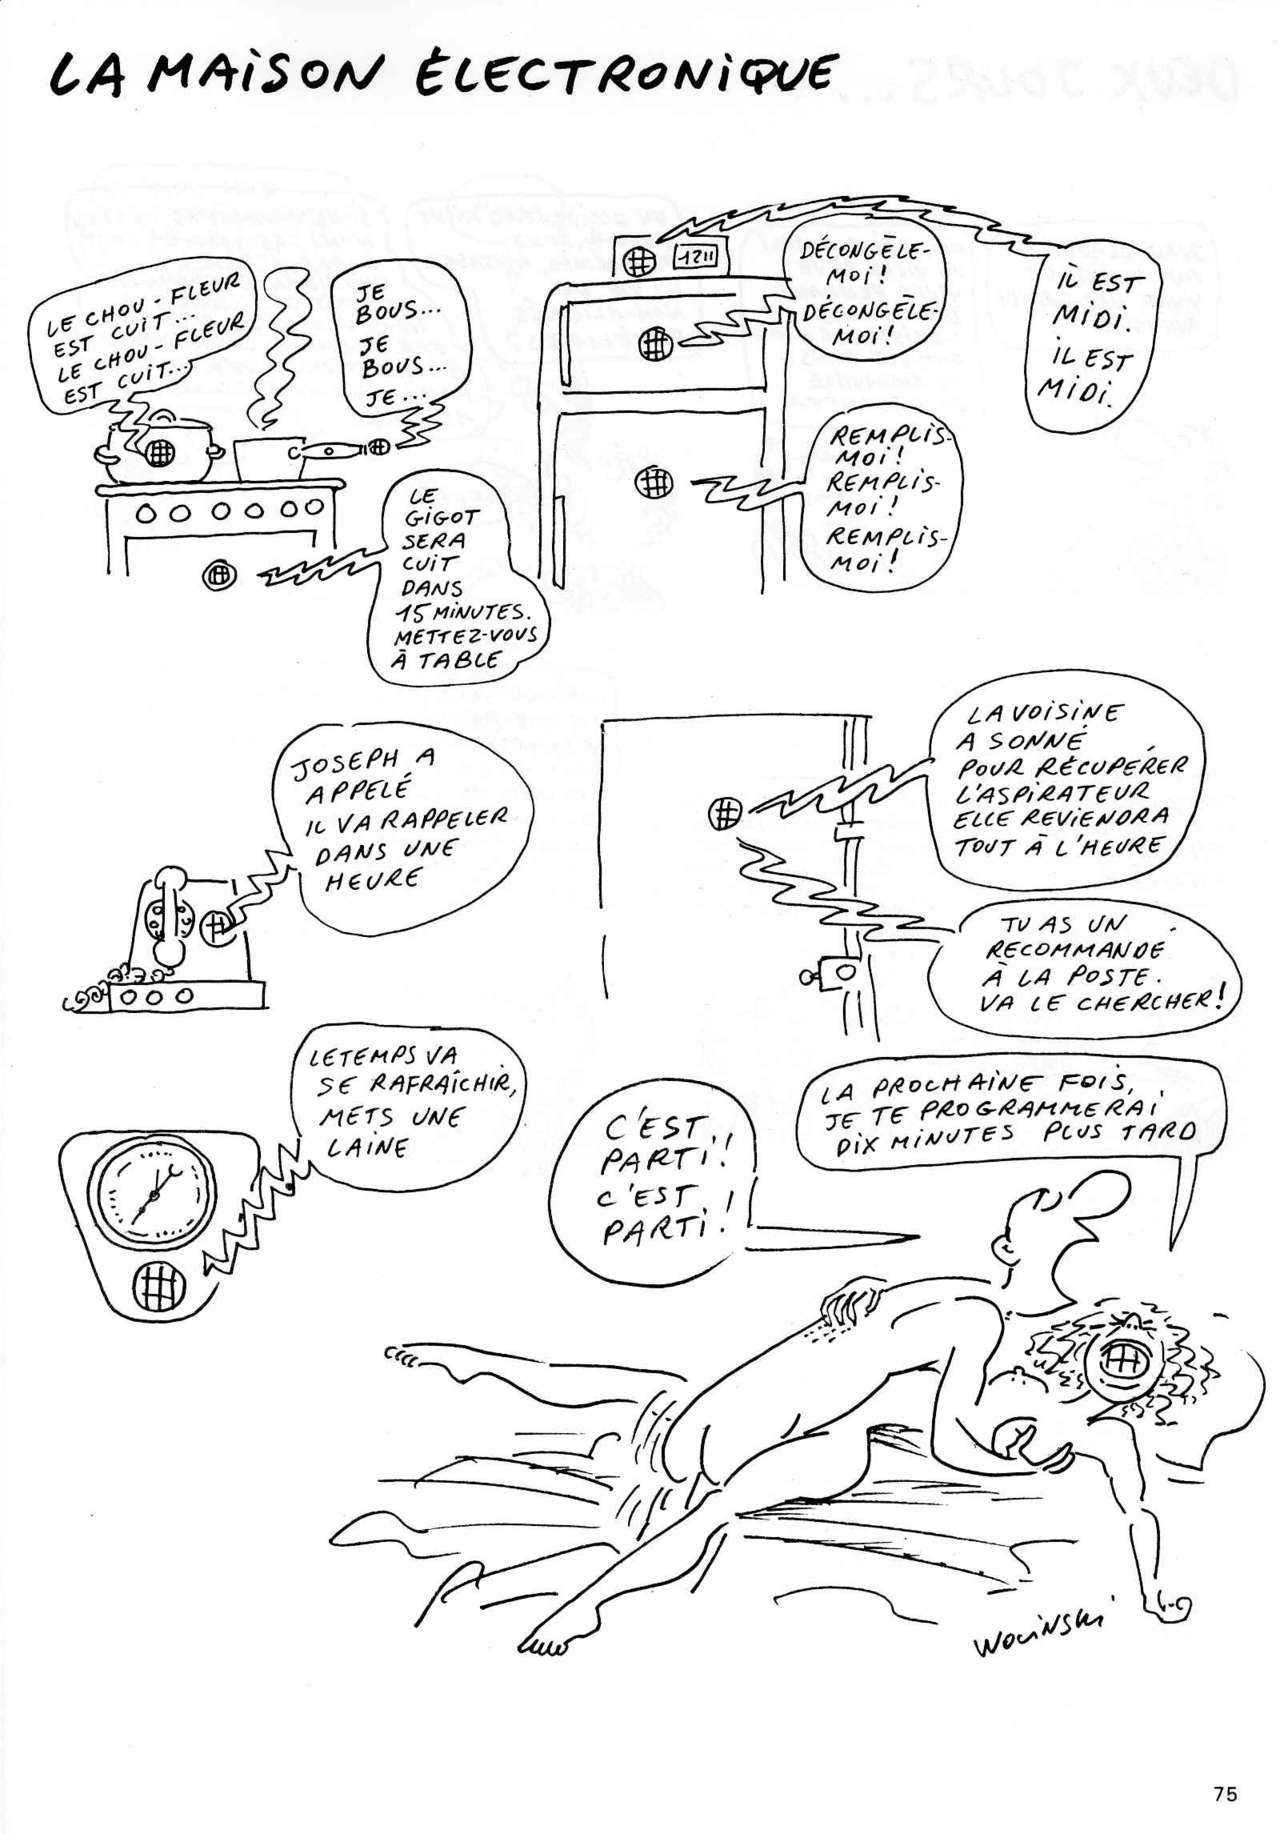 LA MAISON ÉLECTRONIQUE
LE CHOU-FLEUR
EST CUIT...
LE CHOU-FLEUR
EST CUIT...
JE
BOUS...
JE
BOUS...
JE...
LE
GIGOT
SERA
CUIT
DANS
15 MINUTES.
METTEZ-VOUS
À TABLE
12 11
DÉCONGÈLE-
MOI!
DÉCONGÈLE-
MOI!
IL EST
MIDI.
IL EST
MIDI.
REMPLIS-
MOI!
REMPLIS-
MOI!
REMPLIS-
MOI!
JOSEPH A
APPELÉ
IL VA RAPPELER
DANS UNE
HEURE
LA VOISINE
A SONNÉ
POUR RÉCUPÉRER
L'ASPIRATEUR
ELLE REVIENDRA
TOUT À L'HEURE
TU AS UN
RECOMMANDÉ
À LA POSTE.
VA LE CHERCHER!
LE TEMPS VA
SE RAFRAÎCHIR,
METS UNE
LAINE
C'EST
PARTI!
C'EST
PARTI!
LA PROCHAINE FOIS,
JE TE PROGRAMMERAI
DIX MINUTES PLUS TARD
WOLINSKI
75